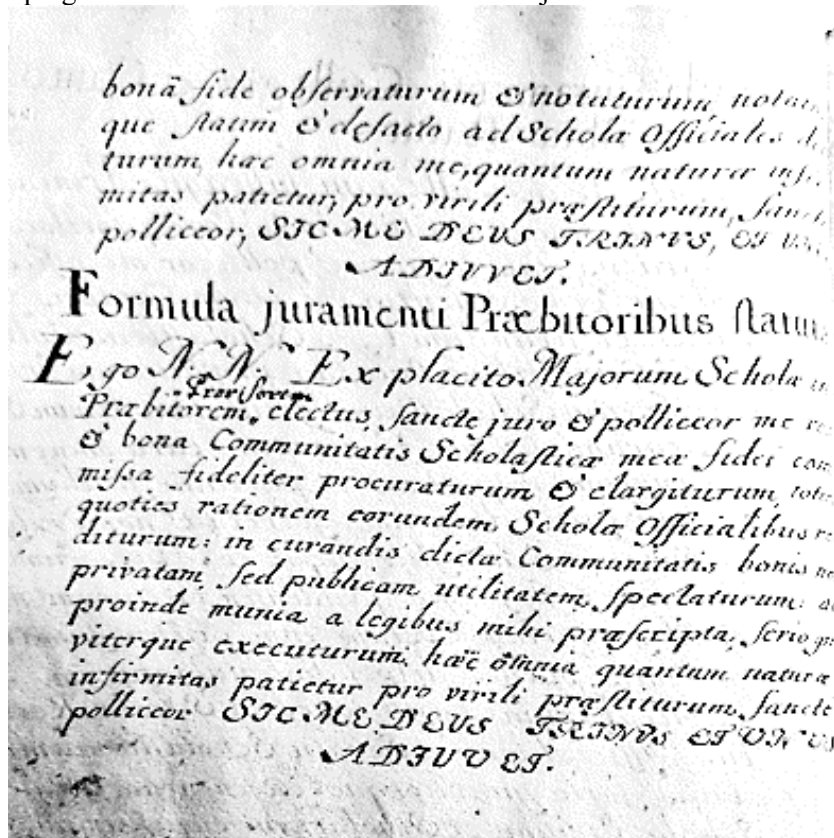 bonâ fide observaturum & notaturum, notan
que statim & defacto ad Scholæ Officiales de
turum, hæc omnia me, quantum naturæ infi
mitas patietur, pro virili præstiturum, Sanct
polliceor, SIC ME DEUS TRINVS, ET UN
ADIVVET.
Formula juramenti Præbitoribus statut
Ego N. N. Ex placito Majorum Scholæ in
Provisorem
Præbitorem electus, sancte juro & polliceor me re
& bona Communitatis Scholasticæ meæ fidei com
missa fideliter procuraturum & elargiturum, toti
quoties rationem eorundem Scholæ Officialibus re
diturum: in curandis dictæ Communitatis bonis no
privatam, sed publicam utilitatem, spectaturum: a
proinde munia a legibus mihi præscripta, serio gra
viterque executurum, hæc o͞mnia quantum naturæ
infirmitas patietur pro virili præstiturum, sancte
polliceor SIC ME DEUS TRINVS ET VNUS
ADIUVET.